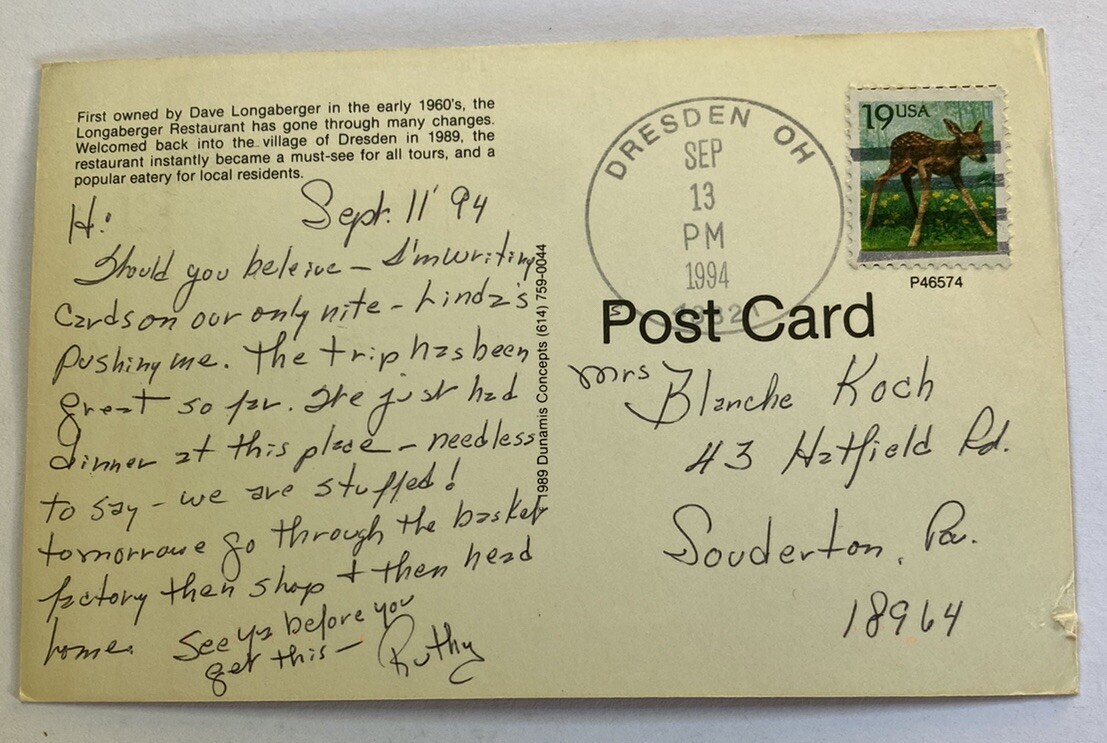 First owned by Dave Longaberger in the early 1960's, the
Longaberger Restaurant has gone through many changes.
Welcomed back into the village of Dresden in 1989, the
restaurant instantly became a must-see for all tours, and a
popular eatery for local residents.
Hi
Sept. 11 '94
Should you beleive - I'm writing
cards on our only nite - Linda's
pushing me. The trip has been
great so far. We just had
dinner at this place - needless
to say - we are stuffed!
tomorrow we go through the basket
factory then shop + then head
home. See ya before you
get this - Ruthy
1989 Dunamis Concepts (614) 759-0044
DRESDEN OH
SEP
13
PM
1994
19 USA
P46574
Post Card
Mrs Blanche Koch
43 Hatfield Rd.
Souderton, Pa.
18964